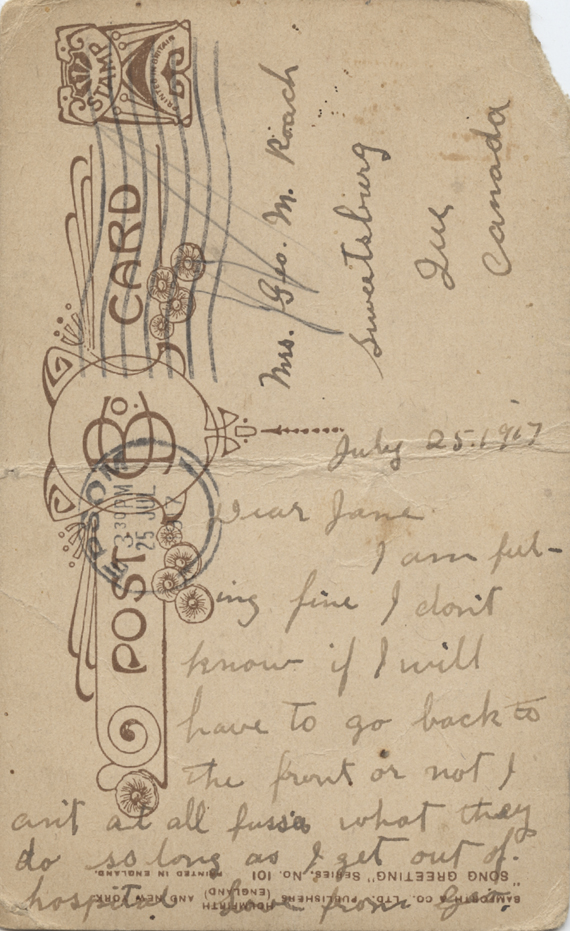 STAMP
PRINTED IN BRITAIN
POST CARD
B. Co.
EPSOM
3 30 PM
25 JUL
17
Mrs. Geo. M. Roach
Sweetsburg
Que
Canada
July 25. 1917
Dear Jane
I am feel-
ing fine I don't
know if I will
have to go back to
the front or not I
ain't at all fussa what they
do so long as I get out of
hospital Love from
BAMFORTH & CO., LTD., PUBLISHERS, HOLMFIRTH (ENGLAND) AND NEW YORK
"SONG GREETING" SERIES. NO. 101
PRINTED IN ENGLAND.